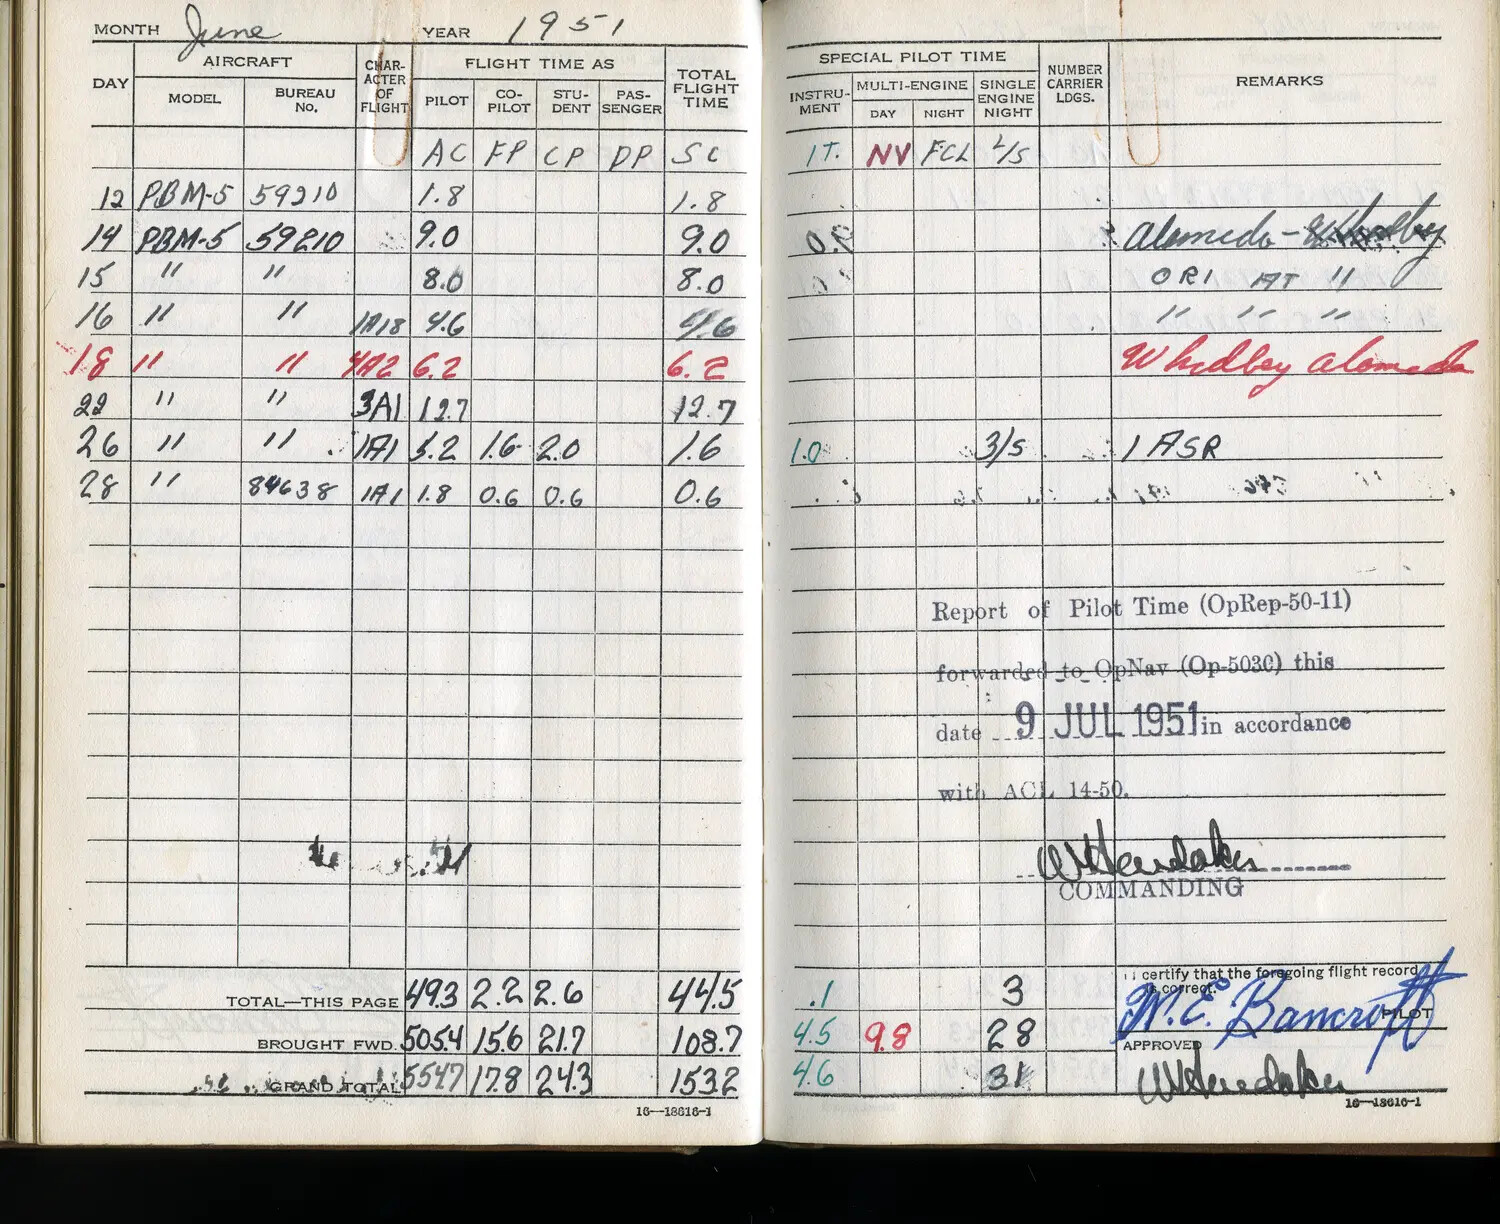 MONTH June YEAR 1951
DAY AIRCRAFT CHAR-ACTER OF FLIGHT FLIGHT TIME AS TOTAL FLIGHT TIME
MODEL BUREAU NO. PILOT CO-PILOT STU-DENT PAS-SENGER
AC FP CP DP SC
12 PBM-5 59210 1.8 1.8
14 PBM-5 59210 9.0 9.0
15 " " 8.0 8.0
16 " " 1A18 4.6 4.6
18 " " 4A2 6.2 6.2
22 " " 3A1 12.7 12.7
26 " " 1A1 5.2 1.6 2.0 1.6
28 " 84638 1A1 1.8 0.6 0.6 0.6
TOTAL—THIS PAGE 49.3 2.2 2.6 44.5
BROUGHT FWD. 505.4 15.6 21.7 108.7
GRAND TOTAL 554.7 17.8 24.3 153.2
16—18616-1
SPECIAL PILOT TIME NUMBER CARRIER LDGS. REMARKS
INSTRU-MENT MULTI-ENGINE SINGLE ENGINE NIGHT
DAY NIGHT
IT. NV FCL L/S
0.0 Alameda - Whidbey
ORI AT "
" " "
Whidbey Alameda
1.0 3/5 1 ASR
Report of Pilot Time (OpRep-50-11)
forwarded to OpNav (Op-503C) this
date 9 JUL 1951 in accordance
with ACL 14-50.
COMMANDING
.1 3 I certify that the foregoing flight record is correct.
4.5 9.8 28 M.E. Bancroft PILOT
4.6 31 APPROVED
16—18616-1